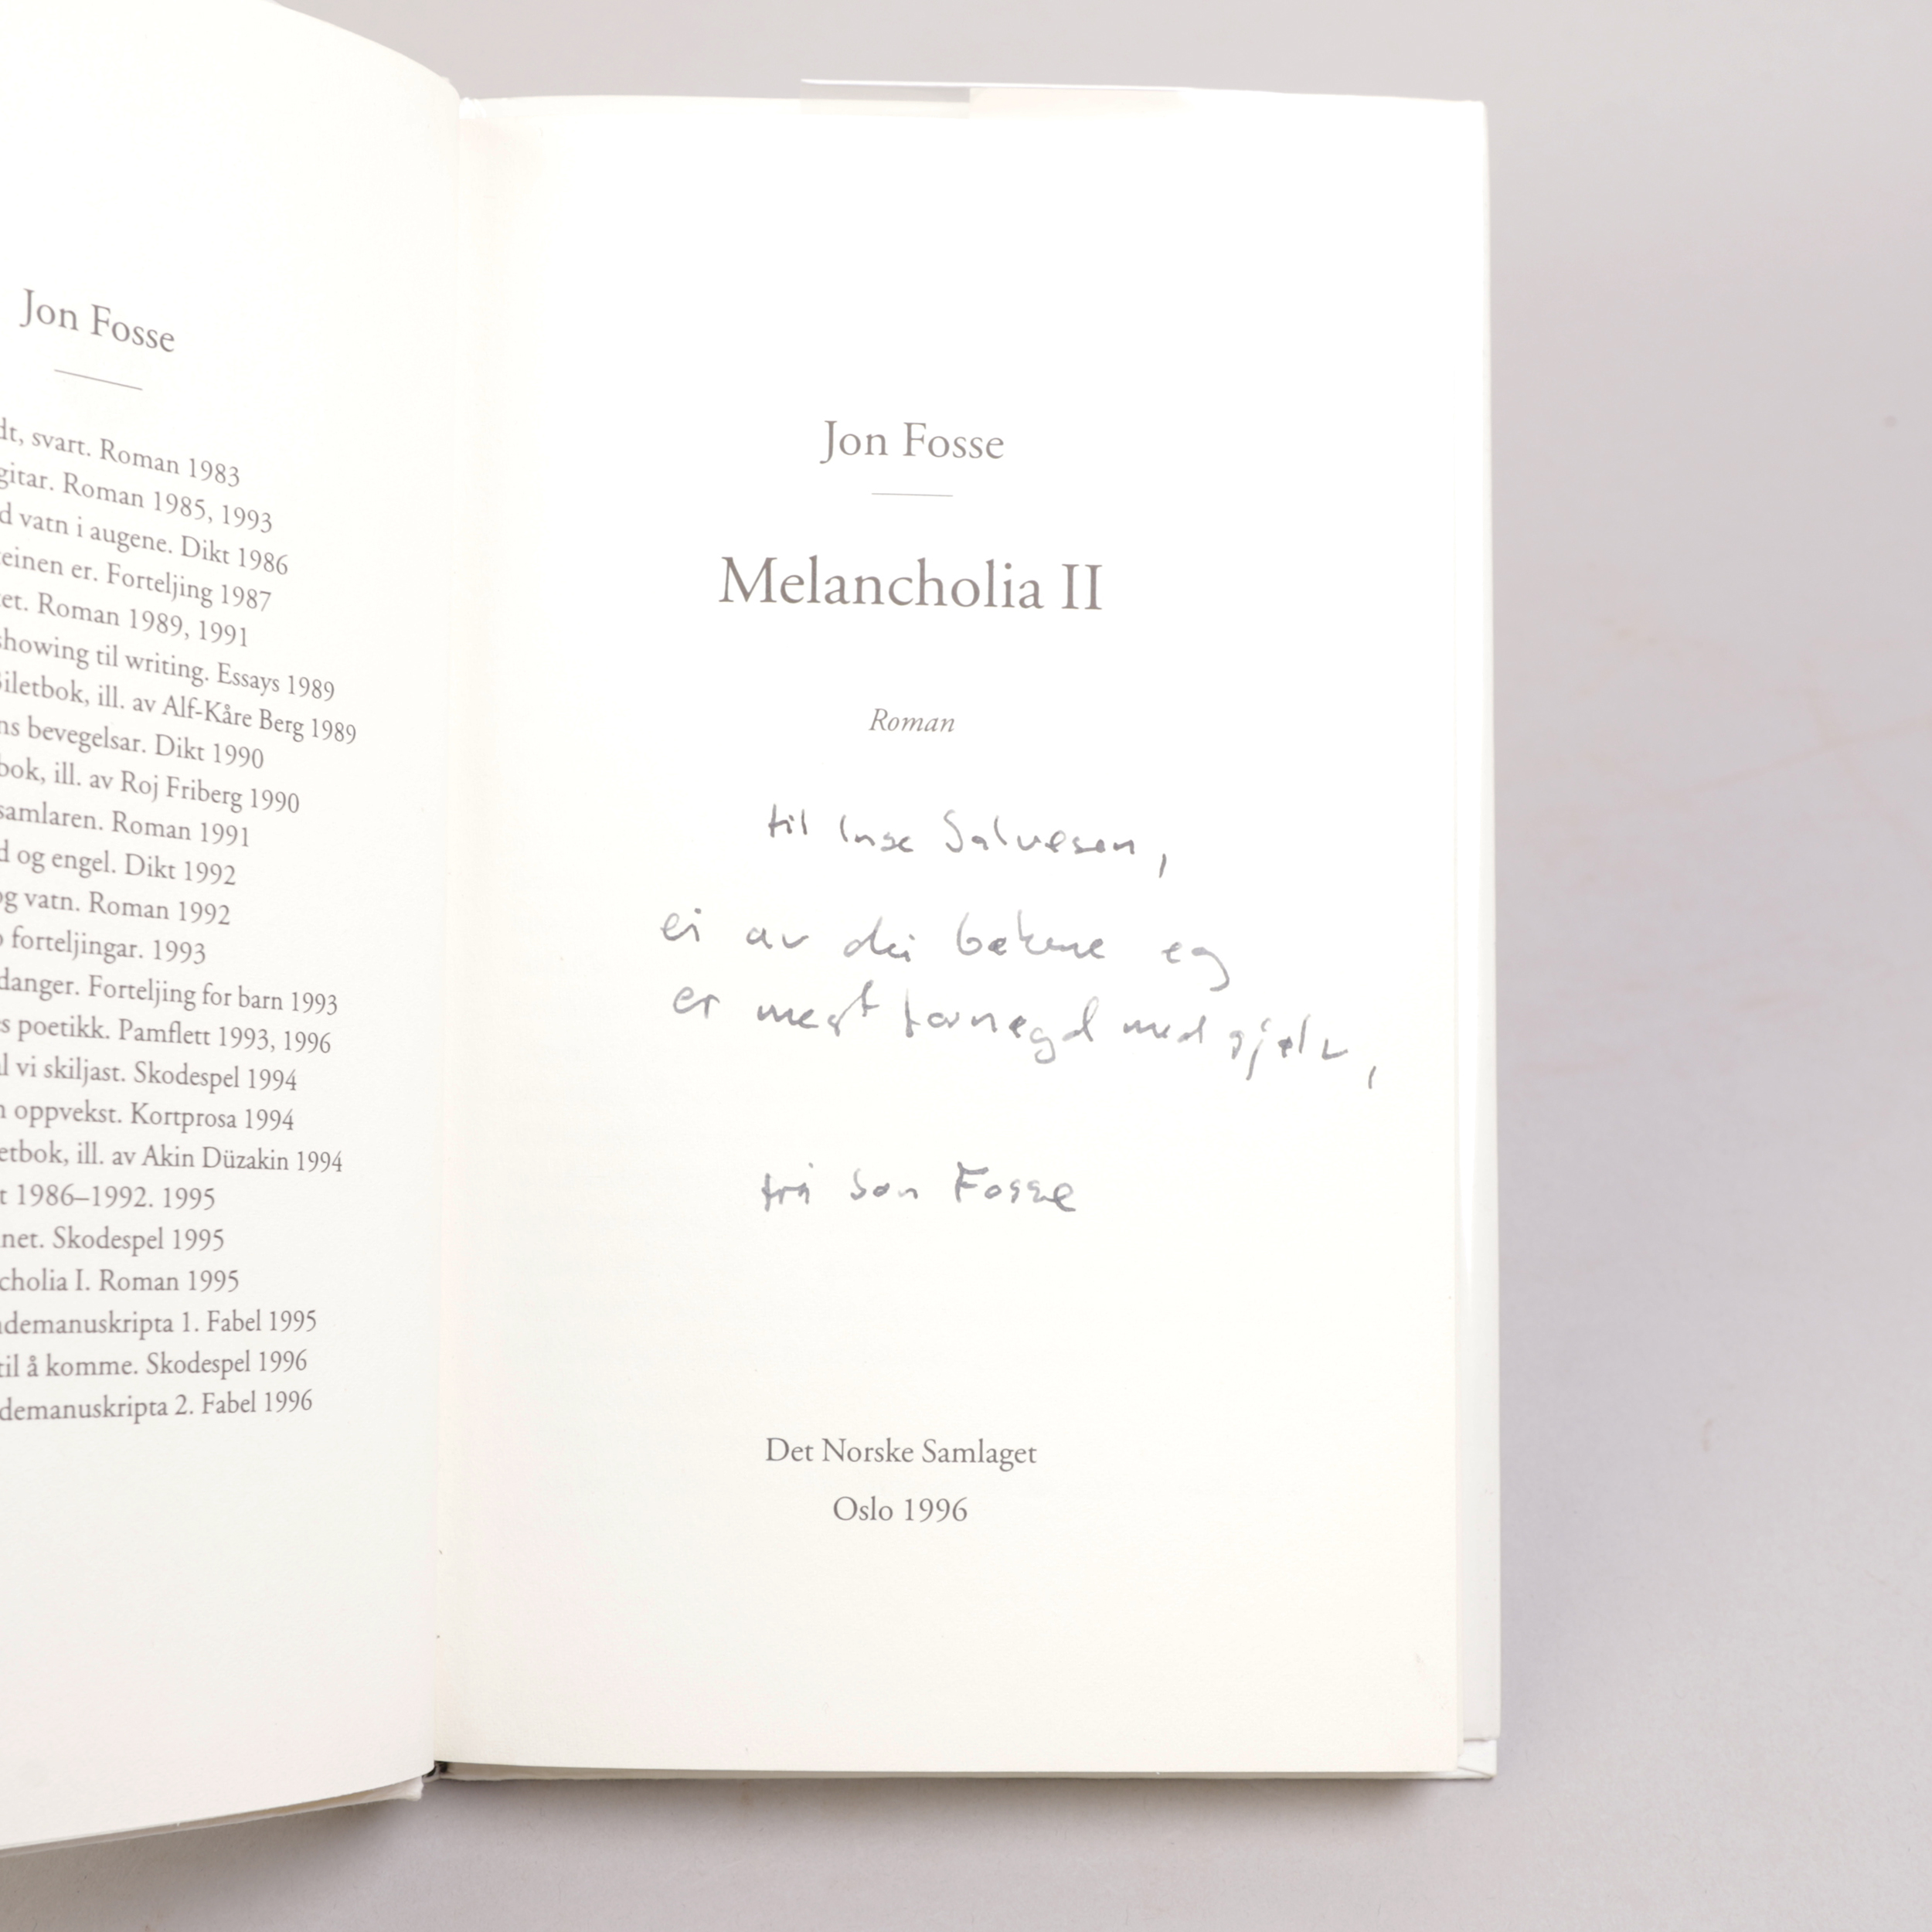 Jon Fosse
dt, svart. Roman 1983
gitar. Roman 1985, 1993
d vatn i augene. Dikt 1986
einen er. Forteljing 1987
et. Roman 1989, 1991
showing til writing. Essays 1989
Biletbok, ill. av Alf-Kåre Berg 1989
ns bevegelsar. Dikt 1990
bok, ill. av Roj Friberg 1990
samlaren. Roman 1991
d og engel. Dikt 1992
og vatn. Roman 1992
o forteljingar. 1993
danger. Forteljing for barn 1993
s poetikk. Pamflett 1993, 1996
l vi skiljast. Skodespel 1994
n oppvekst. Kortprosa 1994
etbok, ill. av Akin Düzakin 1994
t 1986–1992. 1995
net. Skodespel 1995
cholia I. Roman 1995
demanuskripta 1. Fabel 1995
til å komme. Skodespel 1996
demanuskripta 2. Fabel 1996
Jon Fosse
Melancholia II
Roman
til Inge Salvesen,
ei av dei bøkene eg
er mest fornøgd med sjølv,
frå Jon Fosse
Det Norske Samlaget
Oslo 1996